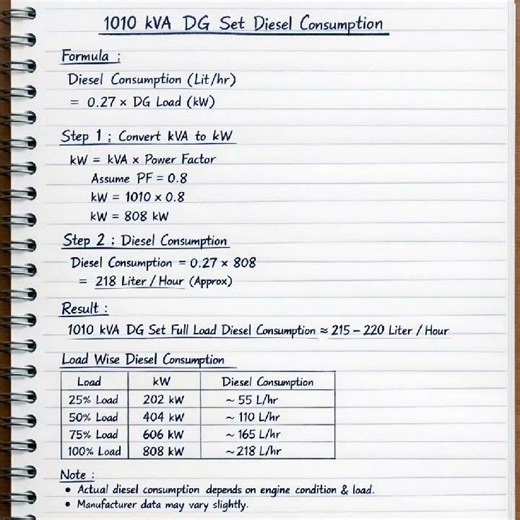 1010 kVA DG Set Diesel Consumption
Formula :
Diesel Consumption (Lit/hr)
= 0.27 × DG Load (kW)
Step 1 : Convert kVA to kW
kW = kVA × Power Factor
Assume PF = 0.8
kW = 1010 × 0.8
kW = 808 kW
Step 2 : Diesel Consumption
Diesel Consumption = 0.27 × 808
= 218 Liter / Hour (Approx)
Result :
1010 kVA DG Set Full Load Diesel Consumption ≈ 215 – 220 Liter / Hour
Load Wise Diesel Consumption
Load kW Diesel Consumption
25% Load 202 kW ~ 55 L/hr
50% Load 404 kW ~ 110 L/hr
75% Load 606 kW ~ 165 L/hr
100% Load 808 kW ~218 L/hr
Note :
• Actual diesel consumption depends on engine condition & load.
• Manufacturer data may vary slightly.